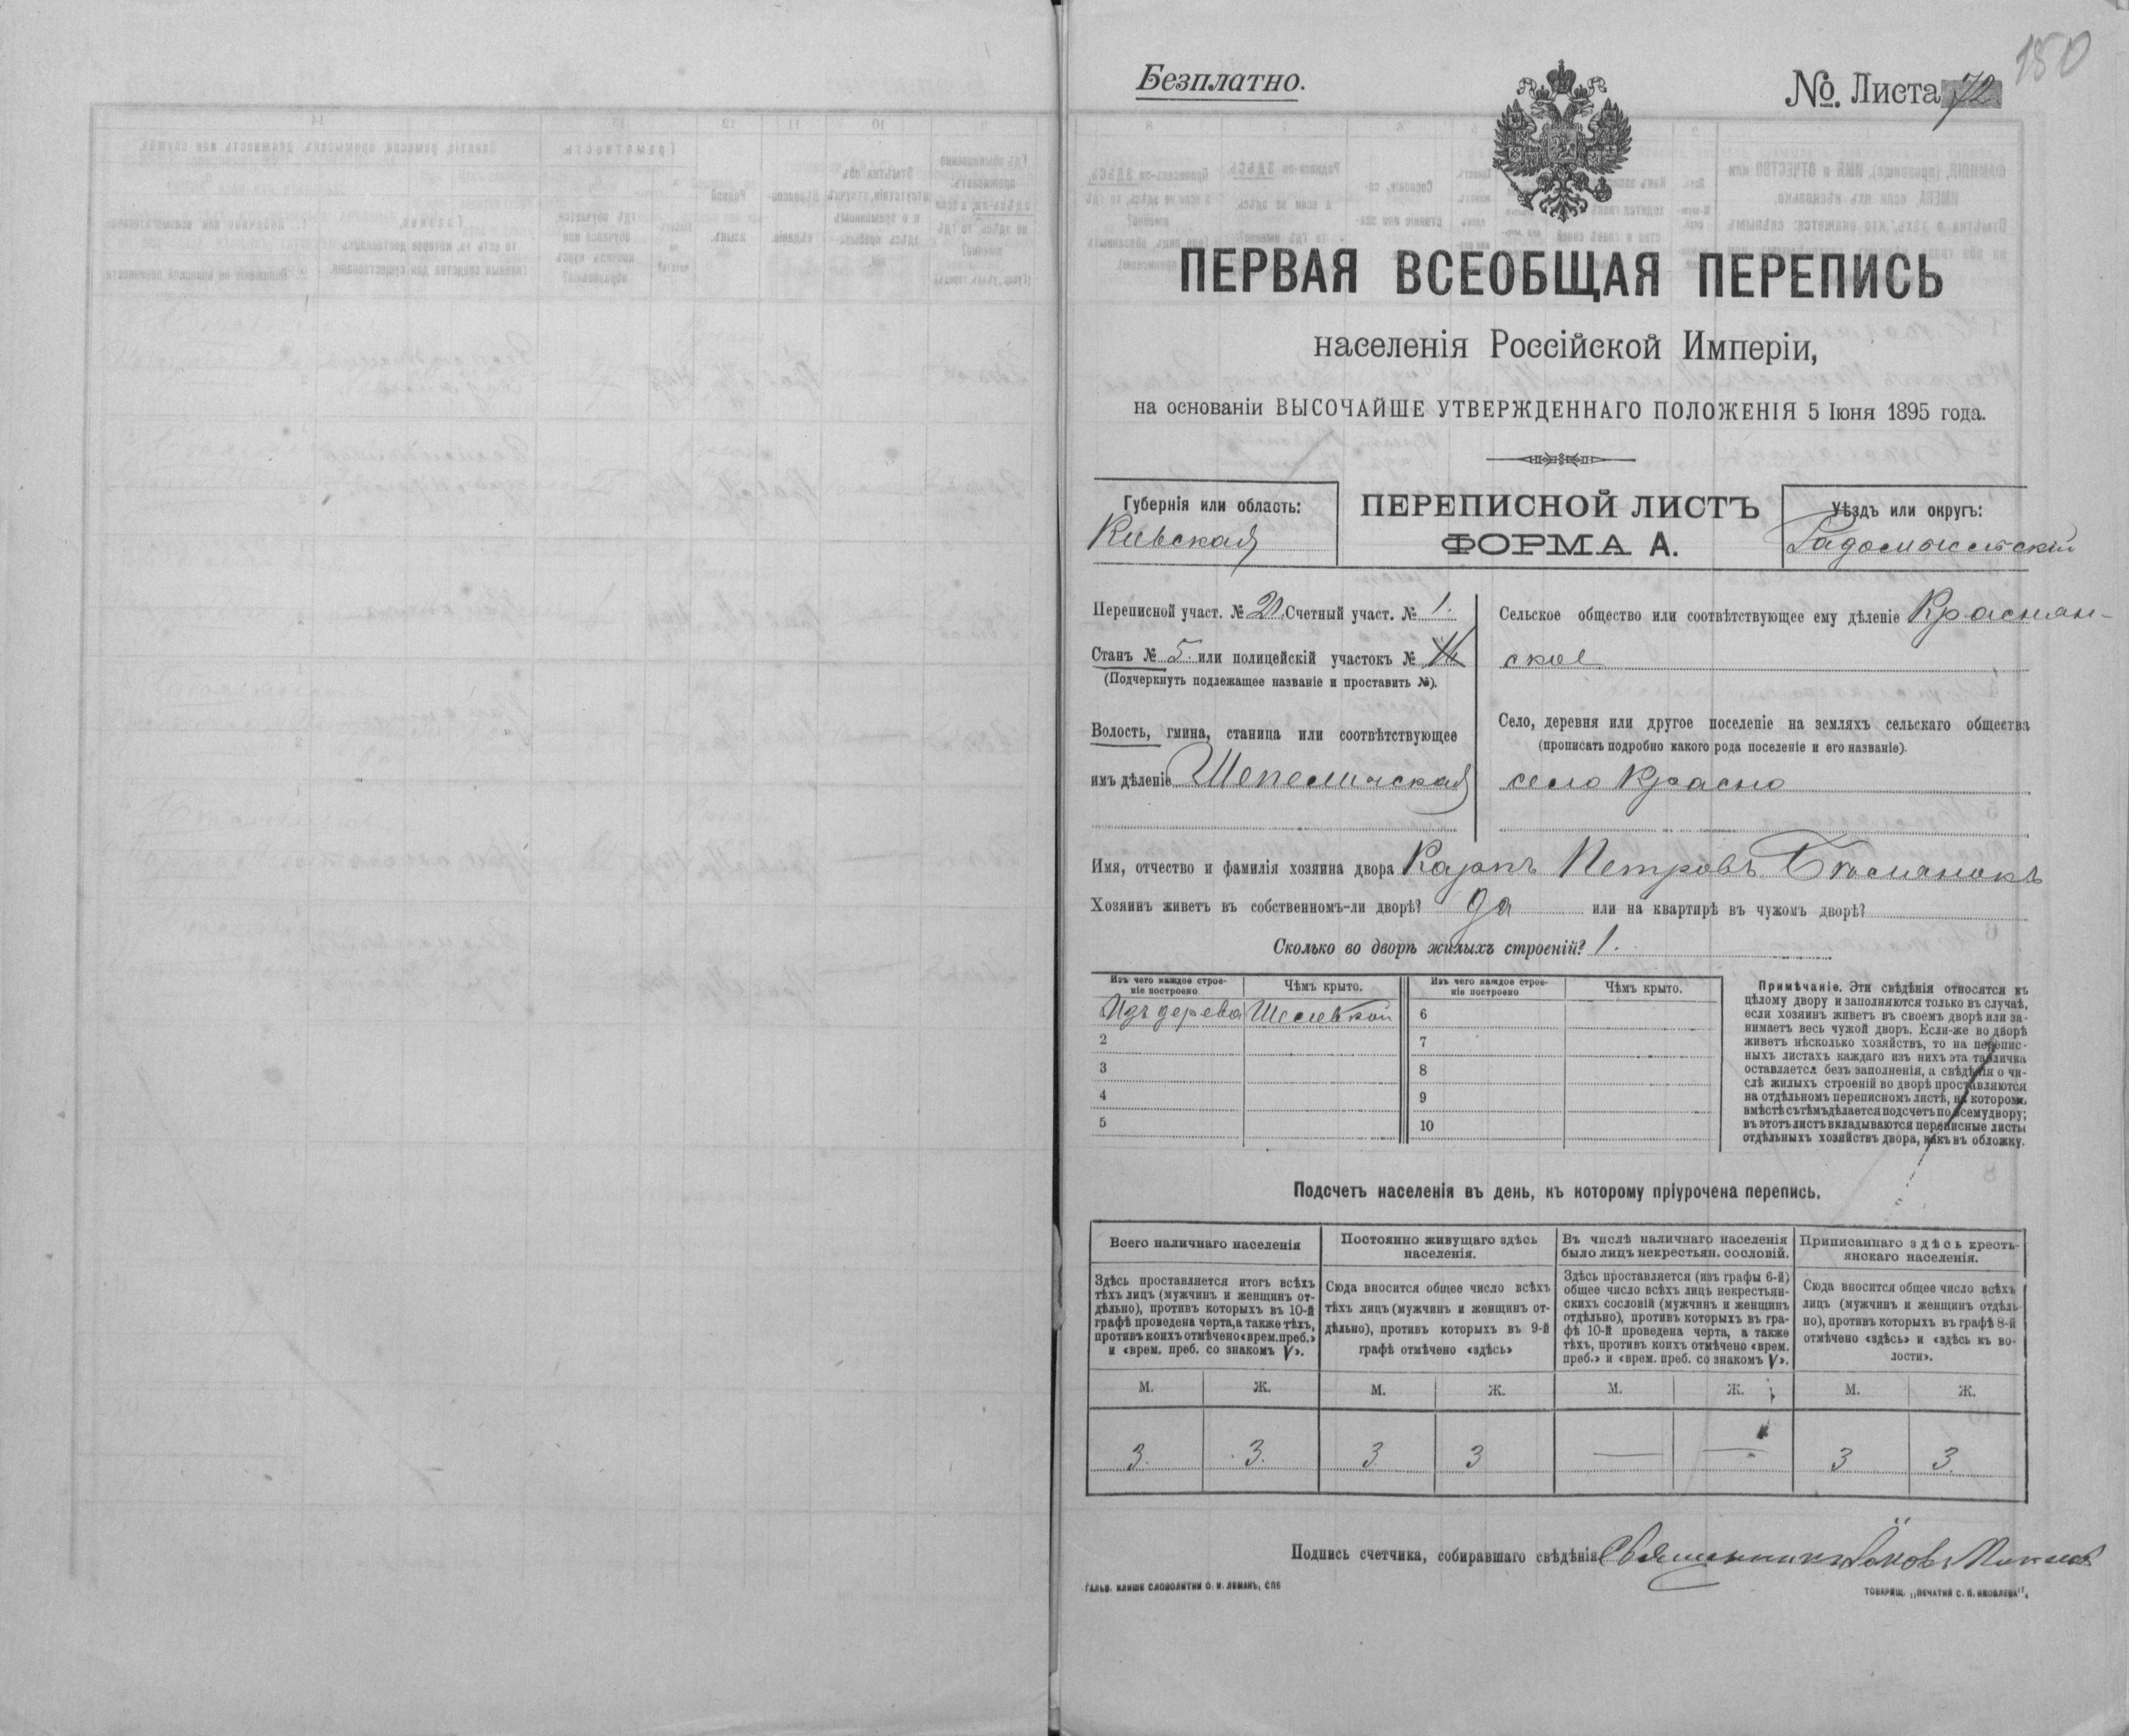 150
Безплатно.
№. Листа 72
ПЕРВАЯ ВСЕОБЩАЯ ПЕРЕПИСЬ
населенія Россійской Имперіи,
на основаніи ВЫСОЧАЙШЕ УТВЕРЖДЕННАГО ПОЛОЖЕНІЯ 5 Іюня 1895 года.
Губернія или область:
Кіевская
ПЕРЕПИСНОЙ ЛИСТЪ
ФОРМА А.
Уѣздъ или округъ:
Радомысльскій
Переписной участ. № 21. Счетный участ. № 1.
Станъ № 5. или полицейскій участокъ №
(Подчеркнуть подлежащее названіе и проставить №).
Волость, гмина, станица или соотвѣтствующее
имъ дѣленіе Шепеличская
Сельское общество или соотвѣтствующее ему дѣленіе Краснян-
ское
Село, деревня или другое поселеніе на земляхъ сельскаго общества
(прописать подробно какого рода поселеніе и его названіе).
село Красно
Имя, отчество и фамилія хозяина двора Карпъ Петровъ
Хозяинъ живетъ въ собственномъ-ли дворѣ? да или на квартирѣ въ чужомъ дворѣ?
Сколько во дворѣ жилыхъ строеній? 1.
Изъ чего каждое строе-
ніе построено
Чѣмъ крыто.
Изъ чего каждое строе-
ніе построено
Чѣмъ крыто.
Изъ дерева
6
2
7
3
8
4
9
5
10
Примѣчаніе. Эти свѣдѣнія относятся къ
цѣлому двору и заполняются только въ случаѣ,
если хозяинъ живетъ въ своемъ дворѣ или за-
нимаетъ весь чужой дворъ. Если-же во дворѣ
живетъ нѣсколько хозяйствъ, то на перепис-
ныхъ листахъ каждаго изъ нихъ эта табличка
оставляется безъ заполненія, а свѣдѣнія о чи-
слѣ жилыхъ строеній во дворѣ проставляются
на отдѣльномъ переписномъ листѣ, на которомъ
вмѣстѣ съ тѣмъ дѣлается подсчетъ по всему двору;
въ этотъ листъ вкладываются переписные листы
отдѣльныхъ хозяйствъ двора, какъ въ обложку.
Подсчетъ населенія въ день, къ которому пріурочена перепись.
Всего наличнаго населенія
Здѣсь проставляется итогъ всѣхъ
тѣхъ лицъ (мужчинъ и женщинъ от-
дѣльно), противъ которыхъ въ 10-й
графѣ проведена черта, а также тѣхъ,
противъ коихъ отмѣчено «врем. преб.»
и «врем. преб. со знакомъ V».
Постоянно живущаго здѣсь
населенія.
Сюда вносится общее число всѣхъ
тѣхъ лицъ (мужчинъ и женщинъ от-
дѣльно), противъ которыхъ въ 9-й
графѣ отмѣчено «здѣсь»
Въ числѣ наличнаго населенія
было лицъ некрестьян. сословій.
Здѣсь проставляется (изъ графы 6-й)
общее число всѣхъ лицъ некрестьян-
скихъ сословій (мужчинъ и женщинъ
отдѣльно), противъ которыхъ въ гра-
фѣ 10-й проведена черта, а также
тѣхъ, противъ коихъ отмѣчено «врем.
преб.» и «врем. преб. со знакомъ V».
Приписаннаго здѣсь кресть-
янскаго населенія.
Сюда вносится общее число всѣхъ
лицъ (мужчинъ и женщинъ отдѣль-
но), противъ которыхъ въ графѣ 8-й
отмѣчено «здѣсь» и «здѣсь къ во-
лости».
М. Ж. М. Ж. М. Ж. М. Ж.
3. 3. 3 3 — — 3 3.
Подпись счетчика, собиравшаго свѣдѣнія Священникъ Іаковъ
ГАЛЬВ. КЛИШЕ СЛОВОЛИТНИ О. И. ЛЕМАНЪ, СПБ
ТОВАРИЩ. „ПЕЧАТНЯ С. П. ЯКОВЛЕВА".